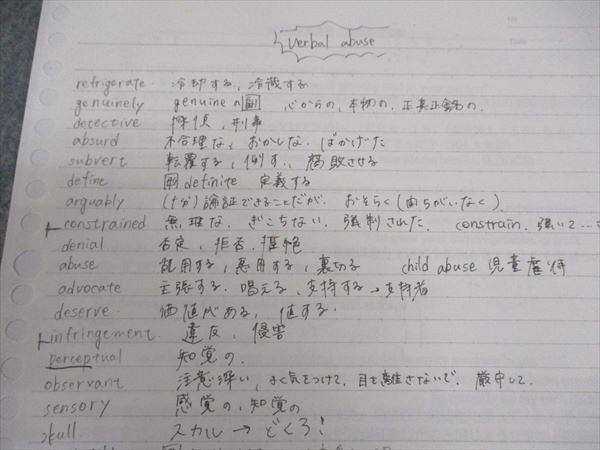 verbal abuse
refrigerate 冷却する、冷蔵する
genuinely genuineの副 心からの、本物の、正真正銘の.
detective 探偵、刑事
absurd 不合理な、おかしな.ばかげた
subvert 転覆する、倒す.、腐敗させる
define 形 definite 定義する
arguably (十分)論証できることだが. おそらく(まちがいなく)
constrained 無理な.ぎこちない.強制された. constrain.強いて…
denial 否定、拒否、拒絶
abuse 乱用する、悪用する、裏切る child abuse 児童虐待
advocate 主張する.唱える、支持する→支持者
deserve 価値がある、値する.
infringement. 違反、侵害
perceptual 知覚の.
observant 注意深い、よく気をつけて、目を離さないで.厳守して.
sensory 感覚の、知覚の
skull スカル→どくろ!